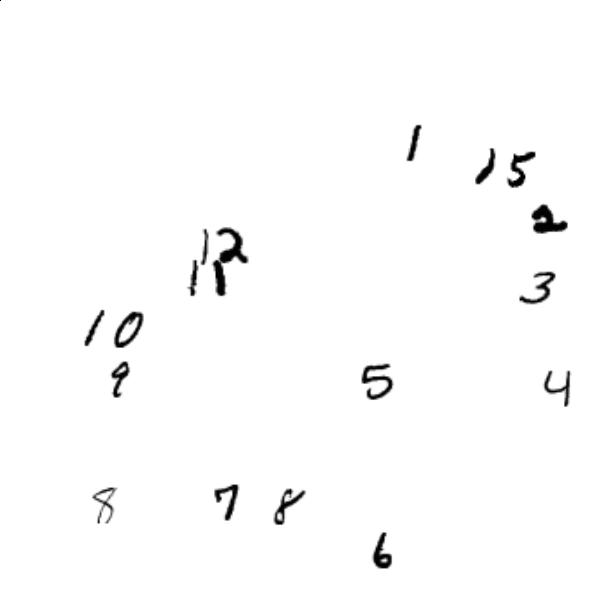 1
15
2
12
11
3
10
9
5
4
8
7
8
6